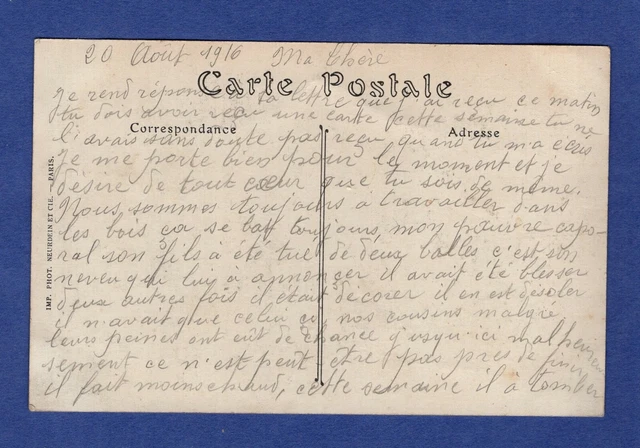 20 Août 1916 Ma Chère
Carte Postale
Je rend répon à ta lettre que j'ai reçu ce matin
tu dois avoir reçu une carte cette semaine tu ne
Correspondance
Adresse
l'avais sans doute pas reçu quand tu m'a ecris
Je me porte bien pour le moment et je
désire de tout cœur que tu sois de même.
Nous sommes toujours à travailler dans
les bois ça se bat toujours, mon pauvre capo-
ral son fils à été tué de deux balles c'est son
neveu qui lui a annoncer il avait été blesser
deux autres fois il était décorer il en est désoler
il n'avait que celui ci, nos cousins malgré
leurs peines ont eût de chance jusqu'ici malheureu
sement ce n'est peut être pas près de finir
il fait moins chaud, cette semaine il à tomber
IMP. PHOT. NEURDEIN ET CIE. - PARIS.